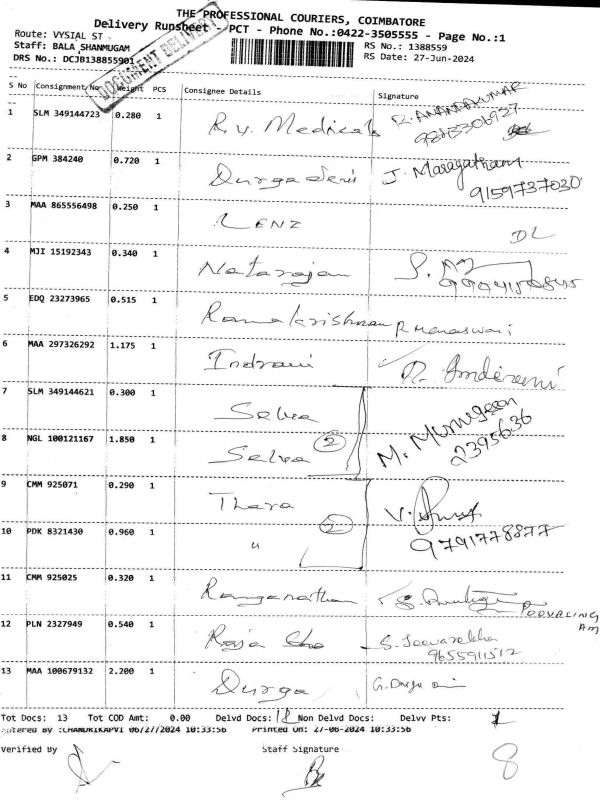 THE PROFESSIONAL COURIERS, COIMBATORE
Delivery Runsheet - PCT - Phone No.:0422-3505555 - Page No.:1
Route: VYSIAL ST
Staff: BALA SHANMUGAM
DRS No.: DCJB138855901
RS No.: 1388559
RS Date: 27-Jun-2024
DOCUMENT DELIVERY
S No Consignment/No Weight PCS Consignee Details Signature
1 SLM 349144723 0.280 1 R.V. Medicals R. ANANDAKUMAR
2 GPM 384240 0.720 1 Durga Devi J. Maragatham
9159737030
3 MAA 865556498 0.250 1 LENZ DL
4 MJI 15192343 0.340 1 Natarajan
5 EDQ 23273965 0.515 1 Ramakrishnan
6 MAA 297326292 1.175 1 Indrani
7 SLM 349144621 0.300 1 Selva M. Murugesan
2395636
8 NGL 100121167 1.850 1 Selva 2
9 CMM 925071 0.290 1 Thara
10 PDK 8321430 0.960 1 " 2 9791778877
11 CMM 925025 0.320 1 Ranganathan
12 PLN 2327949 0.540 1 Raja S. Jeevarekha
9655911512
13 MAA 100679132 2.200 1 Durga G. Durga
Tot Docs: 13 Tot COD Amt: 0.00 Delvd Docs: Non Delvd Docs: Delvy Pts:
Entered By :CHANDRIKAPVI 06/27/2024 10:33:56 Printed On: 27-06-2024 10:33:56
Verified By Staff Signature
8